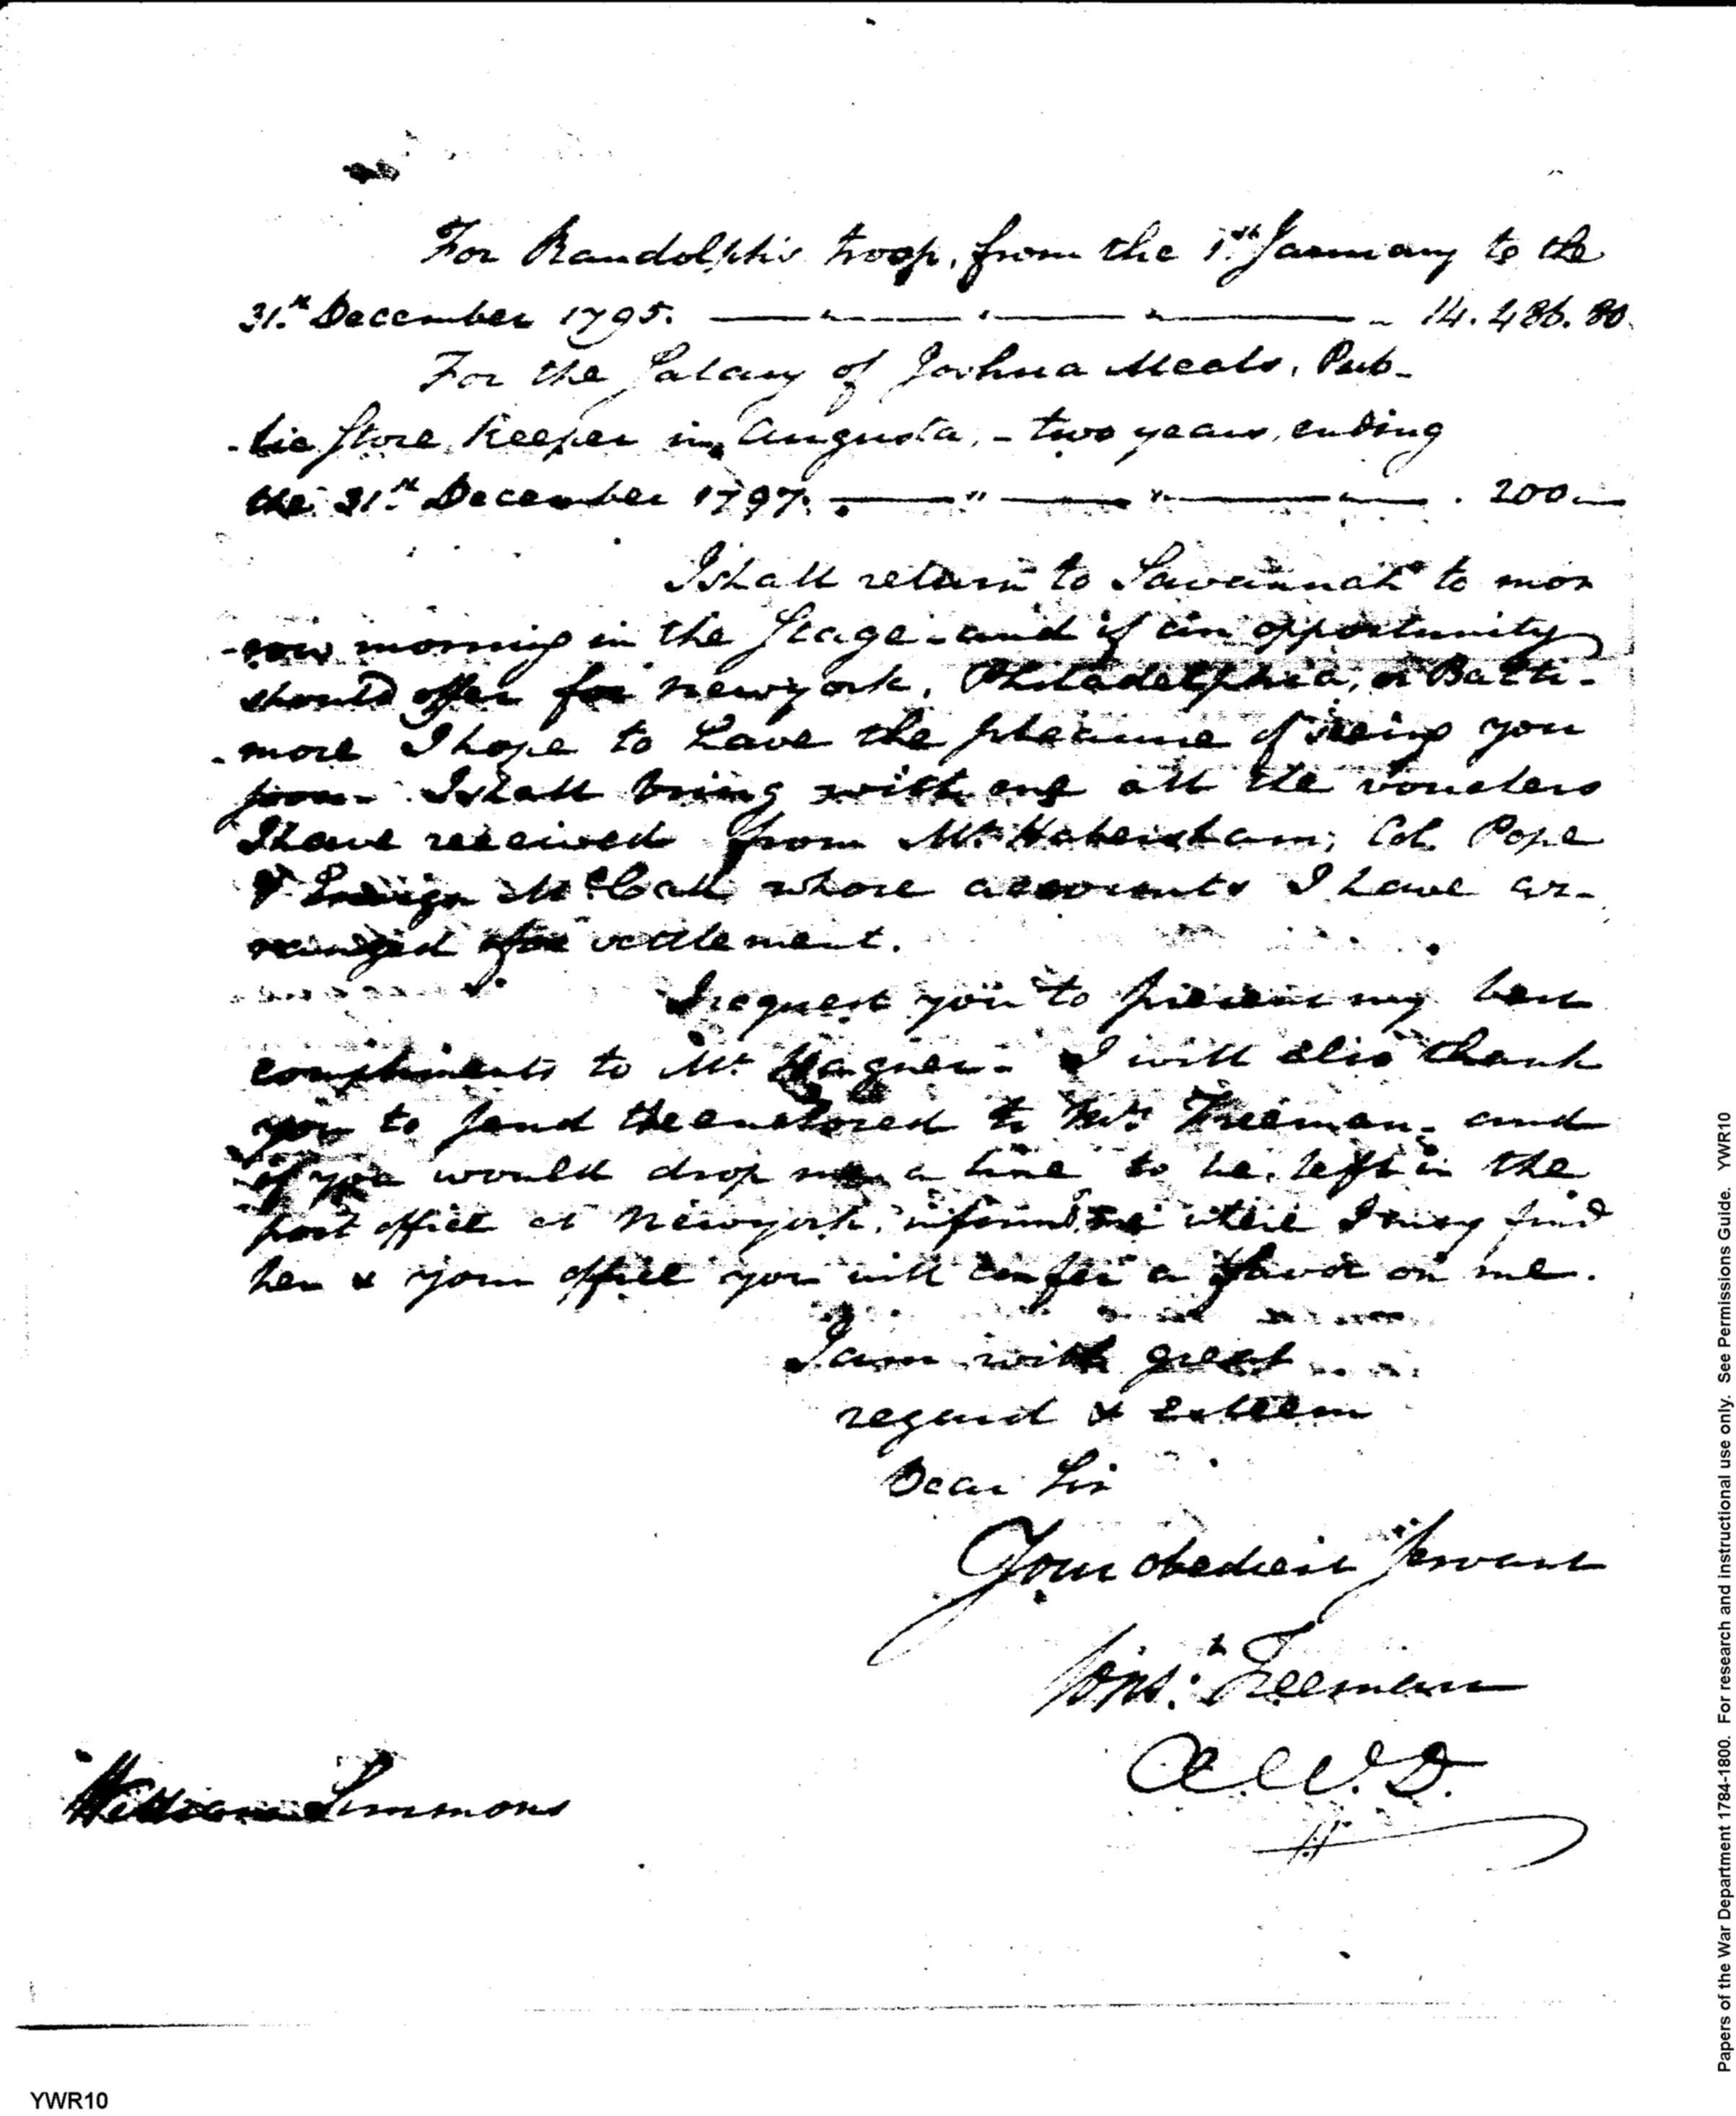 For Randolph's troop, from the 1st January to the
31st December 1795. 14.486.80.
For the Salary of Joshua Meals, Pub-
-lic Store Keeper in Augusta, - two years, ending
the 31st December 1797. 200
I shall return to Savannah to mor
-row morning in the Stage - and if an opportunity
should offer for Newyork, Philadelphia, or Balti-
-more I hope to have the pleasure of seeing you
soon - I shall bring with me all the vouchers
I have received from Mr. Habersham, Col. Pope
& Ensign McCall whose accounts I have ar-
ranged for settlement.
I request you to present my best
compliments to Mr. Wagner - I will also thank
you to send the enclosed to Mrs. Freeman - and
if you would drop me a line to be left in the
post office at Newyork, inform'g me where I may find
her & your office you will confer a favor on me.
I am with great
regard & esteem
Dear Sir
Your obedient servant
Cons.t Freeman
A.W.D.
William Simmons
YWR10
Papers of the War Department 1784-1800. For research and instructional use only. See Permissions Guide. YWR10